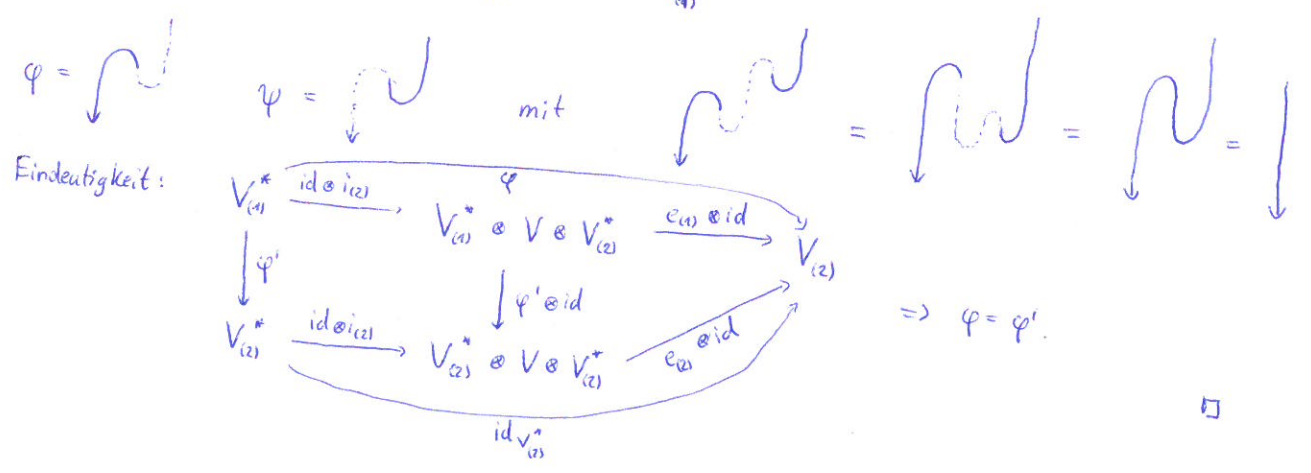 (1)
φ = ψ = mit = = =
Eindeutigkeit:
φ
V*₍₁₎ id ⊗ i₍₂₎ V*₍₁₎ ⊗ V ⊗ V*₍₂₎ e₍₁₎ ⊗ id V₍₂₎
φ' φ' ⊗ id
V*₍₂₎ id ⊗ i₍₂₎ V*₍₂₎ ⊗ V ⊗ V*₍₂₎ e₍₂₎ ⊗ id => φ = φ'.
id V*₍₂₎
□